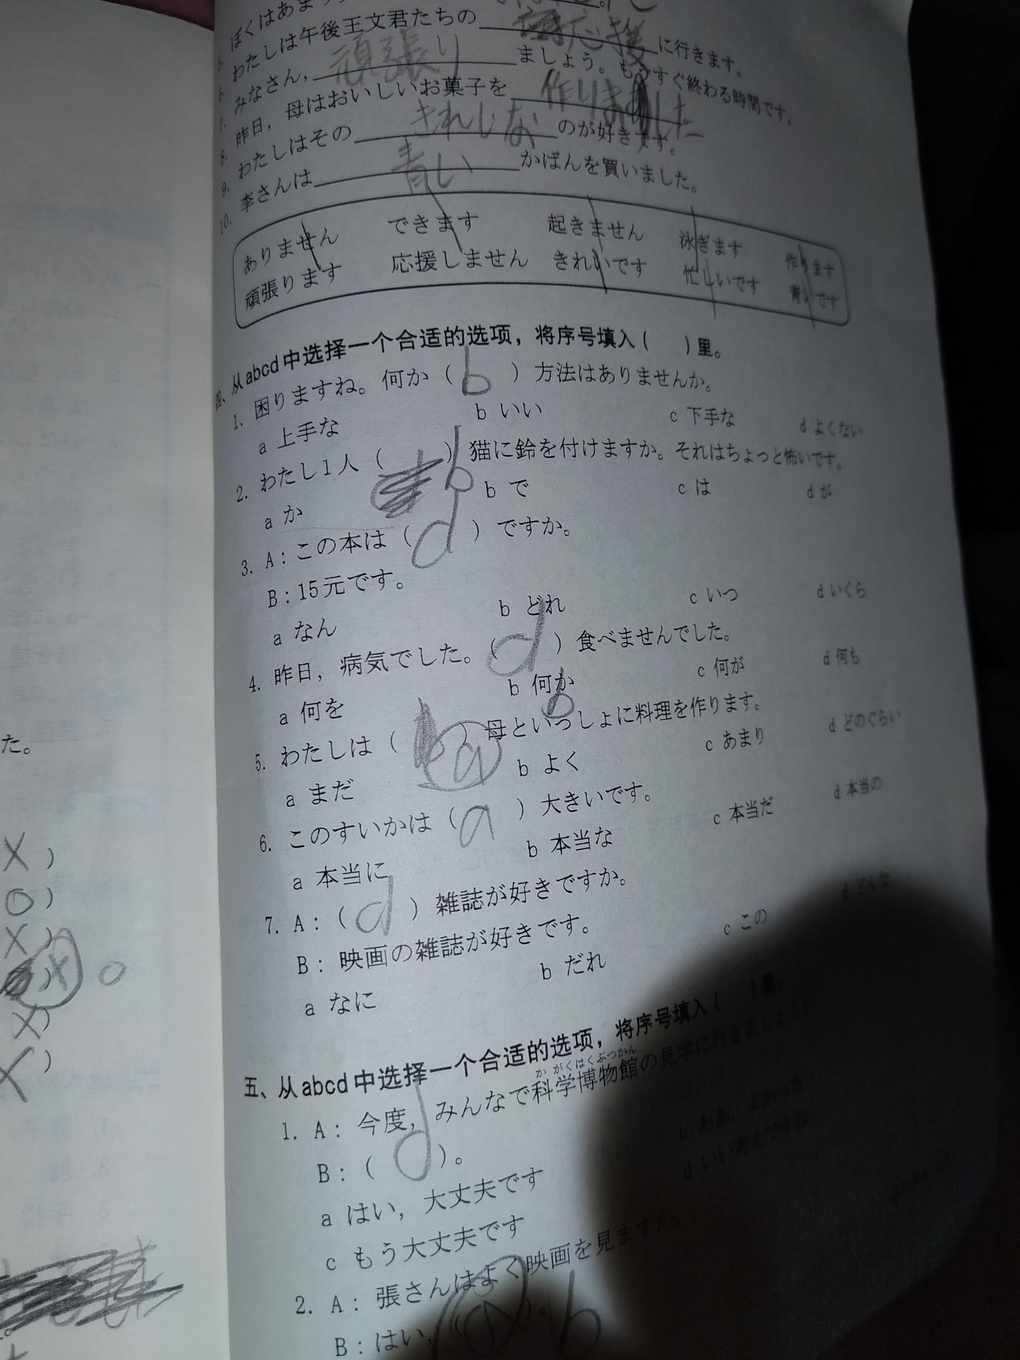 ぼくはあまり
わたしは午後王文君たちの 応援 に行きます。
みなさん, 頑張り ましょう。もうすぐ終わる時間です。
7. 昨日, 母はおいしいお菓子を 作りました
8. わたしはその きれいな のが好きです。
9. 李さんは 青い かばんを買いました。
10.
ありません できます 起きません 泳ぎます 作ります
頑張ります 応援しません きれいです 忙しいです 青いです
四、从abcd中选择一个合适的选项，将序号填入（ ）里。
1. 困りますね。何か（ b ）方法はありませんか。
a 上手な b いい c 下手な d よくない
2. わたし1人（ b ）猫に鈴を付けますか。それはちょっと怖いです。
a か b で c は d が
3. A：この本は（ d ）ですか。
B：15元です。
a なん b どれ c いつ d いくら
4. 昨日, 病気でした。（ d ）食べませんでした。
a 何を b 何か c 何が d 何も
5. わたしは（ a ）母といっしょに料理を作ります。 b
a まだ b よく c あまり d どのぐらい
6. このすいかは（ a ）大きいです。
a 本当に b 本当な c 本当だ d 本当の
7. A：（ d ）雑誌が好きですか。
B：映画の雑誌が好きです。
a なに b だれ c この d どんな
五、从abcd中选择一个合适的选项，将序号填入（ ）里。
1. A：今度, みんなで科学博物館の見学に行きましょう
かがくはくぶつかん
B：（ d ）。
a はい, 大丈夫です
c もう大丈夫です
2. A：張さんはよく映画を見ますか。
B：はい, b
た。
X ）
O ）
X ）
X O
X ）
X ）